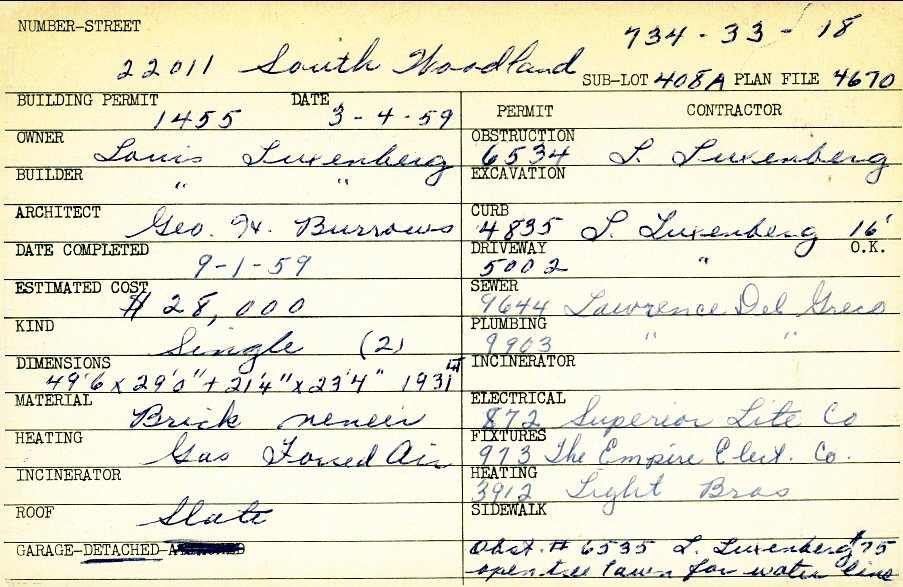 NUMBER-STREET
734-33-18
22011 South Woodland
SUB-LOT 408A PLAN FILE 4670
BUILDING PERMIT DATE
1455 3-4-59
PERMIT CONTRACTOR
OWNER
Louis Luxenberg
OBSTRUCTION
6534 L. Luxenberg
BUILDER
" "
EXCAVATION
ARCHITECT
Geo. H. Burrows
CURB
4835 L. Luxenberg 16'
DATE COMPLETED
9-1-59
DRIVEWAY O.K.
5002 "
ESTIMATED COST
$28,000
SEWER
9644 Lawrence Del Greco
KIND
Single (2)
PLUMBING
9903 " "
DIMENSIONS
49'6 x 29'0" + 21'4" x 23'4" 1931
INCINERATOR
MATERIAL
Brick veneer
ELECTRICAL
872 Superior Lite Co
HEATING
Gas Forced Air
FIXTURES
973 The Empire Elect. Co.
INCINERATOR
HEATING
3912 Light Bros
ROOF
Slate
SIDEWALK
GARAGE-DETACHED-ATTACHED
Obst. # 6535 L. Luxenberg $75
open tree lawn for water line